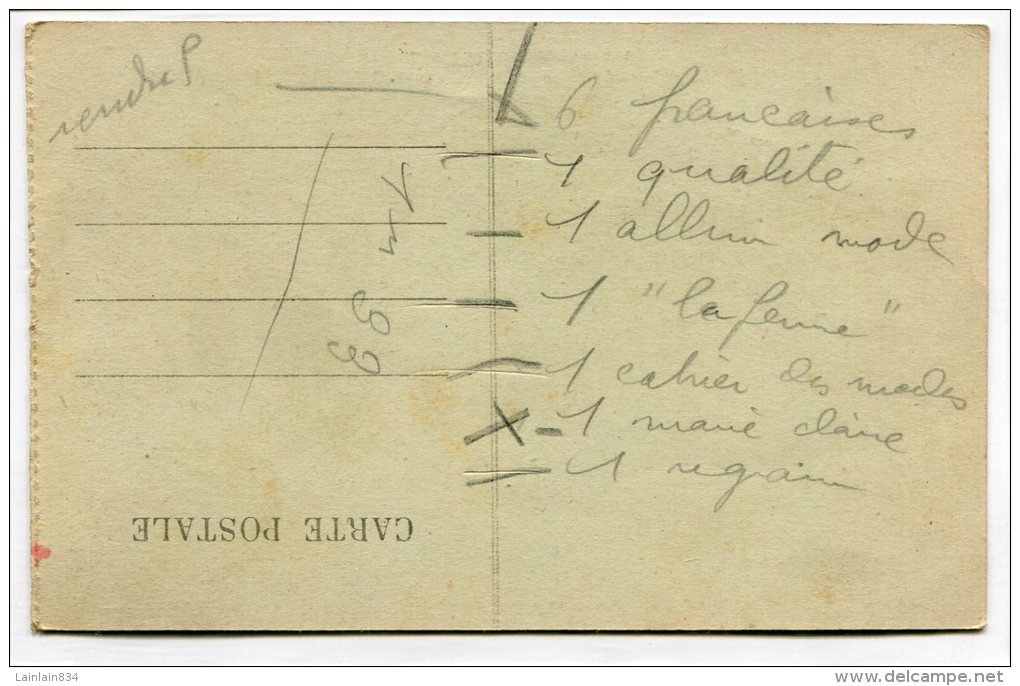 6 francaises
1 qualité
1 album mode
1 "la femme"
1 cahier des modes
1 marie claire
1 regain
CARTE POSTALE
Lainlain834
delcampe.net